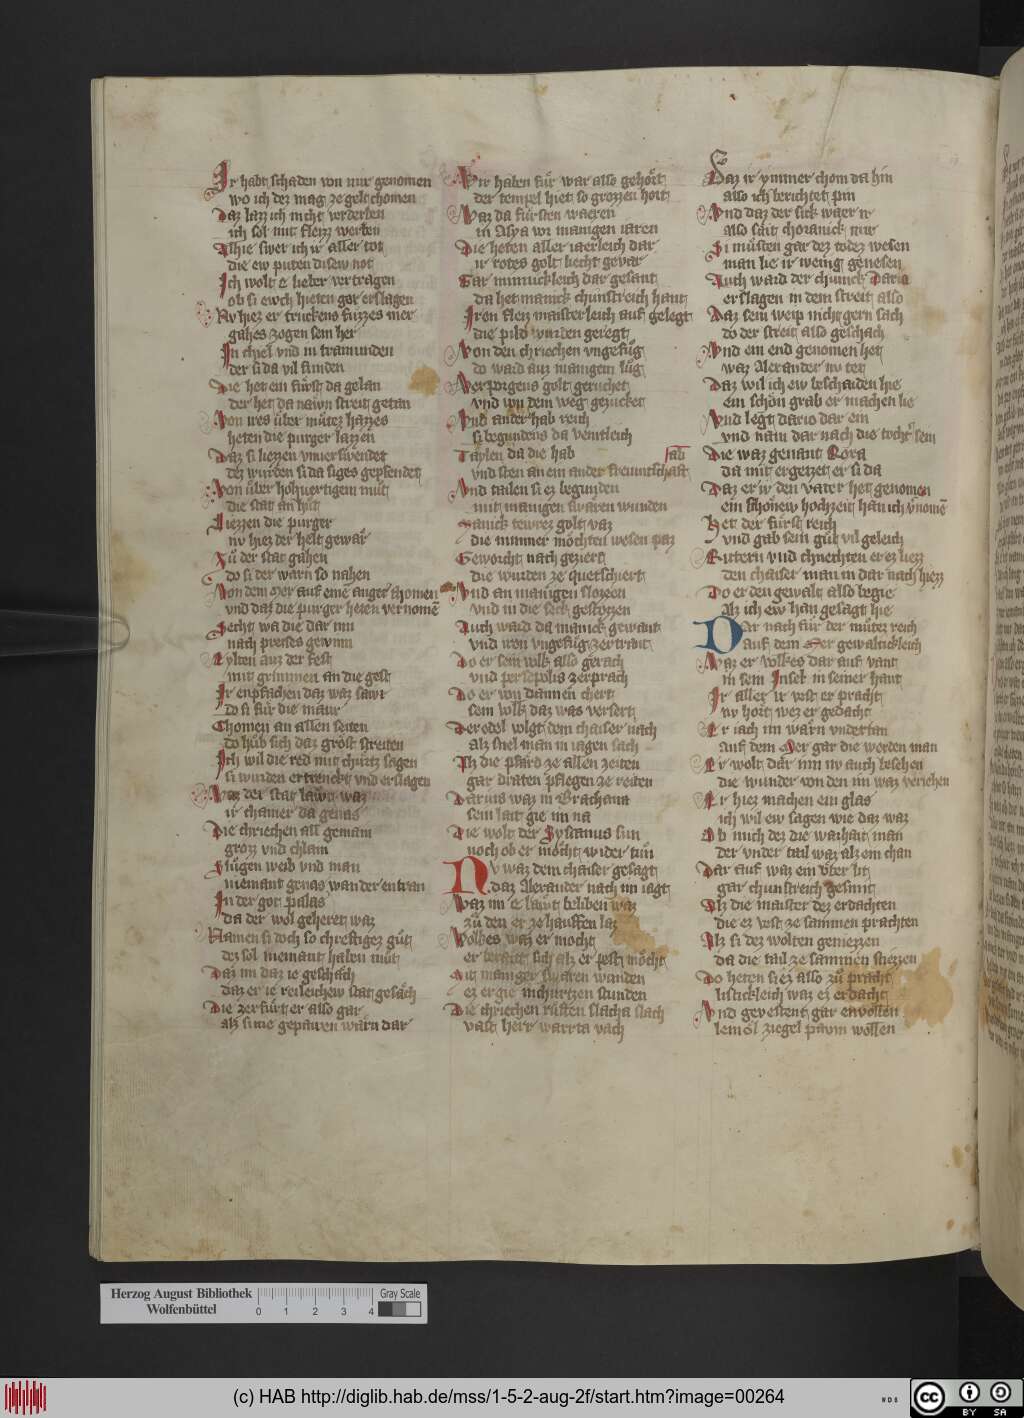 Ir habt schaden von mir genomen
wo ich dez mag ze gelt chomen
Daz lazz ich nicht verderben
ich sol mit fleizz werben
Alhie swer ich ir aller tot
die ew puten disew not
Ich wolt e lieber vertragen
ob si ewch hieten gor erslagen
Nv hiez er truckens fuzzes mer
gahes zogen sein her
In chiel vnd in tramunden
der si da vil funden
Die het ein fürst da gelan
der het da nawn streit getan
Von ires über mütez hazzes
heten die purger lazzen
Daz si liezzen vnuerswendet
dez wurden si da siges gepfendet
Von über hohuertigem müt
die stat an hüt
Liezzen die purger
nv hiez der helt gewär
Zü der stat gahen
do si der warn so nahen
Von dem Mer auf eine anger chomen
vnd daz die purger heten vernome
Secht wa die dar inn
nach preises gewinn
Eylten auz der stat
mit grimmen an die gest
Ir enpfachen daz waz sawr
do si für die maur
Chomen an allen seiten
do hüb sich daz gröst streiten
Ich wil die red mit churtz sagen
si wurden ertrenckt vnd erslagen
Waz der stat lawt waz
ir chainer da genas
Die chriechen all gemain
grozz vnd chlain
Slügen weib vnd man
niemant genas wan der entran
In der got palas
da der wol geheret waz
Namen si doch so chreftigez güt
dez sol niemant haben müt
Daz im daz ie geschäch
daz er ie reileichew stat gesäch
Die zerfürt er also gar
alz si nie gepawen wärn dar
Wir haben für war also gehört
der tempel hiet so grozzen hort
Waz da fürsten waeren
in Asya vor manigen iaren
Die heten aller iaerleich dar
ir rotes golt liecht gevar
Gar minnickleich dar gesant
da het manick chünstreich hant
Iren fleiz maisterleich auf gelegt
die pild wurden geregt
Von den chriechen vngefüg
do ward auz manigem lüg
Verporgens golt geruchet
vnd von dem weg gezucket
Vnd ander hab reich
si begundens da veintleich
Taylen da die hab
hab
vnd sten an ein ander freuntschaft
Vnd tailen si ez begunden
mit manigen swären wunden
Manick tewrez golt vaz
die nimmer möchten wesen paz
Geworcht nach gezierd
die wurden ze quetschiert
Vnd an manigen stozzen
vnd in die seck gestozzen
Auch ward da manick gewant
vnd iren vngefüg zertrant
Do er sein volk also gerach
vnd persepolis zerprach
Do er von dannen chert
sein volk daz was versert
Der edel volgt dem chaiser nach
alz snel man in iagen sach
Ich die pfärd ze allen zeiten
gar draten pflegen ze reiten
Darius waz in Brachana
sein lait gie im na
Die wolt der Zystanus sun
noch ob er möcht wider tün
Nv waz dem chaiser gesagt
daz Alexander nach im iagt
Waz im e lawt beliben waz
zü den er ze hauffen laz
Volkes waz er mocht
er berait sich alz er pest möcht
Mit maniger swären wunden
ez ergie in churtzen stunden
Die chriechen rüften slacha slach
vast herr warrta vach
Daz ir ymmer chom da hin
also ich berichtet pin
Vnd daz der sick waer ir
also sait chronick mir
Si müsten gar dez todez wesen
man lie ir wenig genesen
Auch ward der chunick Darius
erslagen in dem streit also
Daz sein weip nicht gern sach
do der streit also geschach
Vnd ein end genomen het
waz Alexander nv tet
Daz wil ich ew beschaiden hie
ein schön grab er machen lie
Vnd legt dario dar ein
vnd nam dar nach die tocht sein
Die waz genant Roxa
da mit ergetzet er si da
Daz er ir den vater het genomen
ein schönew hochzeit han ich vnome
Het der fürst reich
vnd gab sein güt vil geleich
Rittern vnd chnechten er ez liezz
den chaiser man in dar nach hiezz
Do er den gewalt also begie
Alz ich ew han gesagt hie
Dar nach für der mütez reich
auf dem Mer gewalnickleich
Waz er volkes dar auf vant
in sein Insel in seiner hant
Ir aller ir vest er pracht
nv hort wez er gedacht
Er iach im warn vndertan
auf dem Mer gar die werden man
Er wolt dar inn nv auch besehen
die wunder von den im waz veriehen
Er hiez machen ein glas
ich wil ew sagen wie daz waz
Ob mich dez die warhait man
der vnder tail waz alz ein chan
Dar auf waz ein vster lit
gar chunstreich gesmit
Alz die maister dez erdachten
die ez vest ze sammen prachten
Alz si dez wolten geniezzen
da die tail ze sammen stiezzen
Do heten si ez also zü pracht
listickleich waz ez erdacht
Vnd gevestent gar envollen
leim öl ziegel pawm wollen
Herzog August Bibliothek
Wolfenbüttel
0 1 2 3 4
Gray Scale
(c) HAB http://diglib.hab.de/mss/1-5-2-aug-2f/start.htm?image=00264
cc BY SA